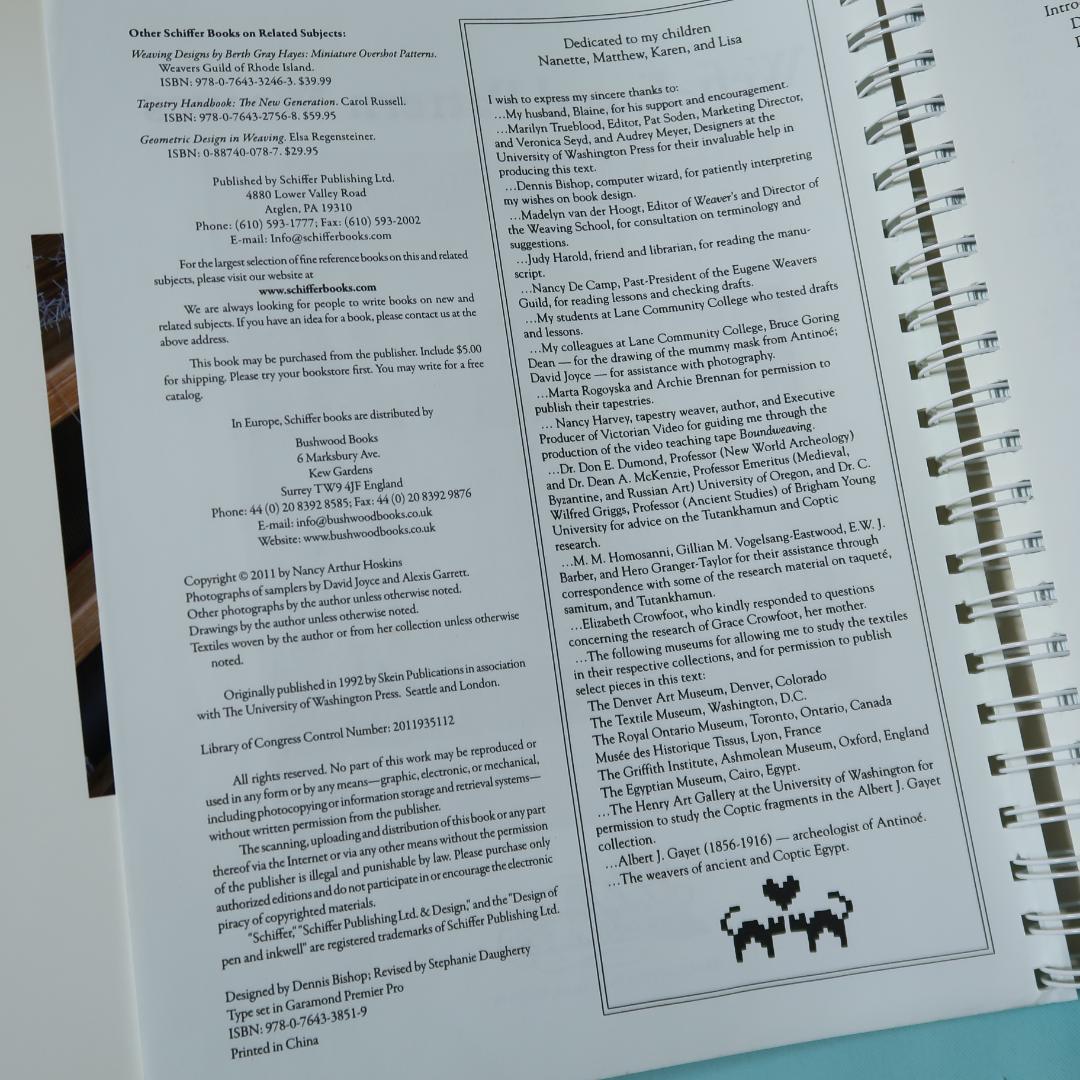 Other Schiffer Books on Related Subjects:
Weaving Designs by Berth Gray Hayes: Miniature Overshot Patterns.
Weavers Guild of Rhode Island.
ISBN: 978-0-7643-3246-3. $39.99
Tapestry Handbook: The New Generation. Carol Russell.
ISBN: 978-0-7643-2756-8. $59.95
Geometric Design in Weaving. Elsa Regensteiner.
ISBN: 0-88740-078-7. $29.95
Published by Schiffer Publishing Ltd.
4880 Lower Valley Road
Atglen, PA 19310
Phone: (610) 593-1777; Fax: (610) 593-2002
E-mail: Info@schifferbooks.com
For the largest selection of fine reference books on this and related
subjects, please visit our website at
www.schifferbooks.com
We are always looking for people to write books on new and
related subjects. If you have an idea for a book, please contact us at the
above address.
This book may be purchased from the publisher. Include $5.00
for shipping. Please try your bookstore first. You may write for a free
catalog.
In Europe, Schiffer books are distributed by
Bushwood Books
6 Marksbury Ave.
Kew Gardens
Surrey TW9 4JF England
Phone: 44 (0) 20 8392 8585; Fax: 44 (0) 20 8392 9876
E-mail: info@bushwoodbooks.co.uk
Website: www.bushwoodbooks.co.uk
Copyright © 2011 by Nancy Arthur Hoskins
Photographs of samplers by David Joyce and Alexis Garrett.
Other photographs by the author unless otherwise noted.
Drawings by the author unless otherwise noted.
Textiles woven by the author or from her collection unless otherwise
noted.
Originally published in 1992 by Skein Publications in association
with The University of Washington Press. Seattle and London.
Library of Congress Control Number: 2011935112
All rights reserved. No part of this work may be reproduced or
used in any form or by any means—graphic, electronic, or mechanical,
including photocopying or information storage and retrieval systems—
without written permission from the publisher.
The scanning, uploading and distribution of this book or any part
thereof via the Internet or via any other means without the permission
of the publisher is illegal and punishable by law. Please purchase only
authorized editions and do not participate in or encourage the electronic
piracy of copyrighted materials.
"Schiffer," "Schiffer Publishing Ltd. & Design," and the "Design of
pen and inkwell" are registered trademarks of Schiffer Publishing Ltd.
Designed by Dennis Bishop; Revised by Stephanie Daugherty
Type set in Garamond Premier Pro
ISBN: 978-0-7643-3851-9
Printed in China
Dedicated to my children
Nanette, Matthew, Karen, and Lisa
I wish to express my sincere thanks to:
...My husband, Blaine, for his support and encouragement.
...Marilyn Trueblood, Editor, Pat Soden, Marketing Director,
and Veronica Seyd, and Audrey Meyer, Designers at the
University of Washington Press for their invaluable help in
producing this text.
...Dennis Bishop, computer wizard, for patiently interpreting
my wishes on book design.
...Madelyn van der Hoogt, Editor of Weaver's and Director of
the Weaving School, for consultation on terminology and
suggestions.
...Judy Harold, friend and librarian, for reading the manu-
script.
...Nancy De Camp, Past-President of the Eugene Weavers
Guild, for reading lessons and checking drafts.
...My students at Lane Community College who tested drafts
and lessons.
...My colleagues at Lane Community College, Bruce Goring
Dean — for the drawing of the mummy mask from Antinoé;
David Joyce — for assistance with photography.
...Marta Rogoyska and Archie Brennan for permission to
publish their tapestries.
... Nancy Harvey, tapestry weaver, author, and Executive
Producer of Victorian Video for guiding me through the
production of the video teaching tape Boundweaving.
...Dr. Don E. Dumond, Professor (New World Archeology)
and Dr. Dean A. McKenzie, Professor Emeritus (Medieval,
Byzantine, and Russian Art) University of Oregon, and Dr. C.
Wilfred Griggs, Professor (Ancient Studies) of Brigham Young
University for advice on the Tutankhamun and Coptic
research.
...M. M. Homosanni, Gillian M. Vogelsang-Eastwood, E.W. J.
Barber, and Hero Granger-Taylor for their assistance through
correspondence with some of the research material on taqueté,
samitum, and Tutankhamun.
...Elizabeth Crowfoot, who kindly responded to questions
concerning the research of Grace Crowfoot, her mother.
...The following museums for allowing me to study the textiles
in their respective collections, and for permission to publish
select pieces in this text:
The Denver Art Museum, Denver, Colorado
The Textile Museum, Washington, D.C.
The Royal Ontario Museum, Toronto, Ontario, Canada
Musée des Historique Tissus, Lyon, France
The Griffith Institute, Ashmolean Museum, Oxford, England
The Egyptian Museum, Cairo, Egypt.
...The Henry Art Gallery at the University of Washington for
permission to study the Coptic fragments in the Albert J. Gayet
collection.
...Albert J. Gayet (1856-1916) — archeologist of Antinoé.
...The weavers of ancient and Coptic Egypt.